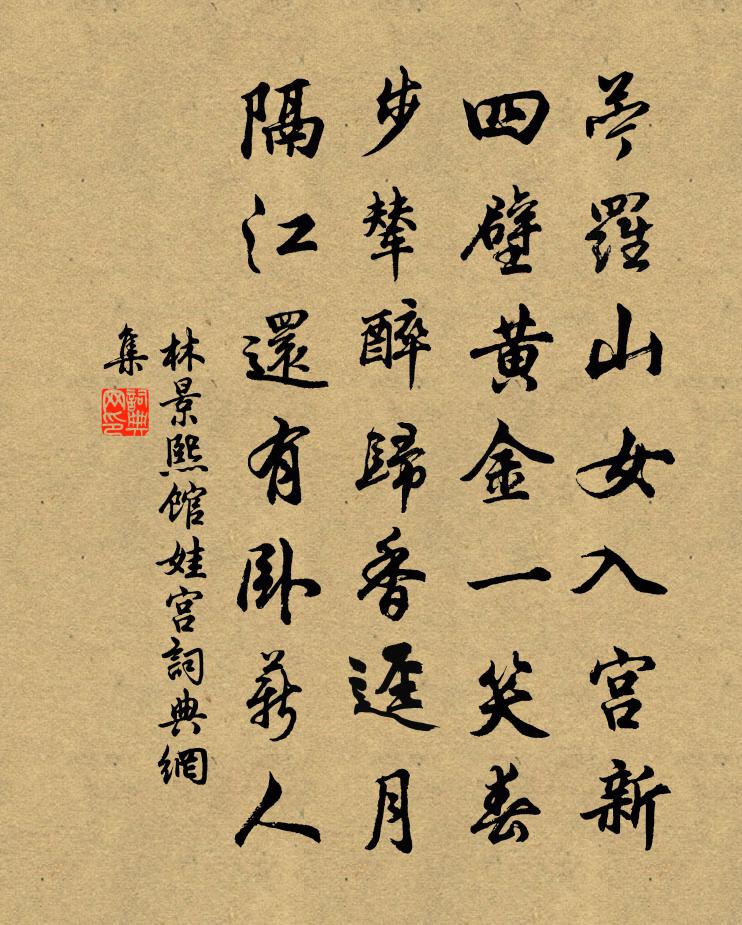 苧羅山女入宫新
四壁黃金一笑春
步輦醉歸香逕月
隔江還有卧薪人
林景熙館娃宫詞典網
集
詞典
网印